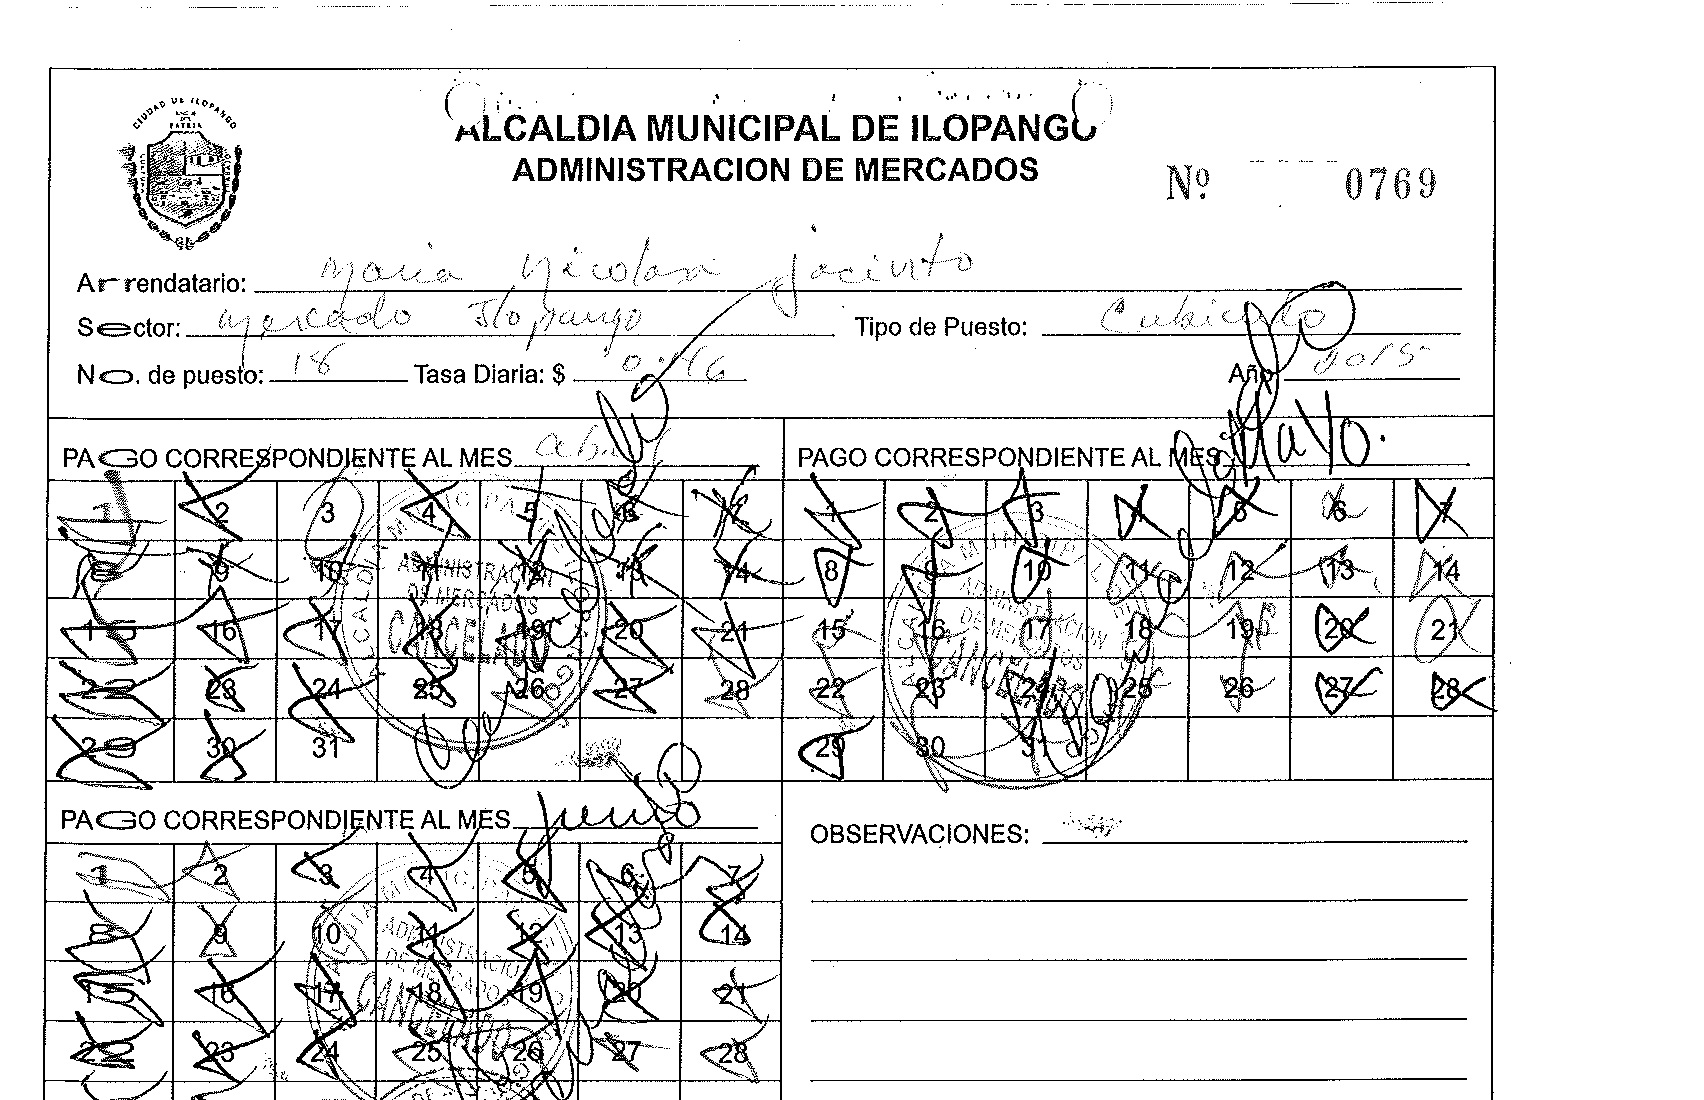 CIUDAD DE ILOPANGO
ALCALDIA MUNICIPAL DE ILOPANGO
ADMINISTRACION DE MERCADOS
Nº 0769
Arrendatario: Maria Nicolasa Jacinto
Sector: Mercado Ilopango Tipo de Puesto: Cubiculo
No. de puesto: 18 Tasa Diaria: $ 0.46 Año 2015
PAGO CORRESPONDIENTE AL MES abril
1 2 3 4 5 6 7
8 9 10 11 12 13 14
15 16 17 18 19 20 21
22 23 24 25 26 27 28
29 30 31
ADMINISTRACION
DE MERCADOS
CANCELADO
PAGO CORRESPONDIENTE AL MES Mayo.
1 2 3 4 5 6 7
8 9 10 11 12 13 14
15 16 17 18 19 20 21
22 23 24 25 26 27 28
29 30 31
ADMINISTRACION
DE MERCADOS
CANCELADO
PAGO CORRESPONDIENTE AL MES Junio
1 2 3 4 5 6 7
8 9 10 11 12 13 14
15 16 17 18 19 20 21
22 23 24 25 26 27 28
ADMINISTRACION
DE MERCADOS
CANCELADO
OBSERVACIONES: